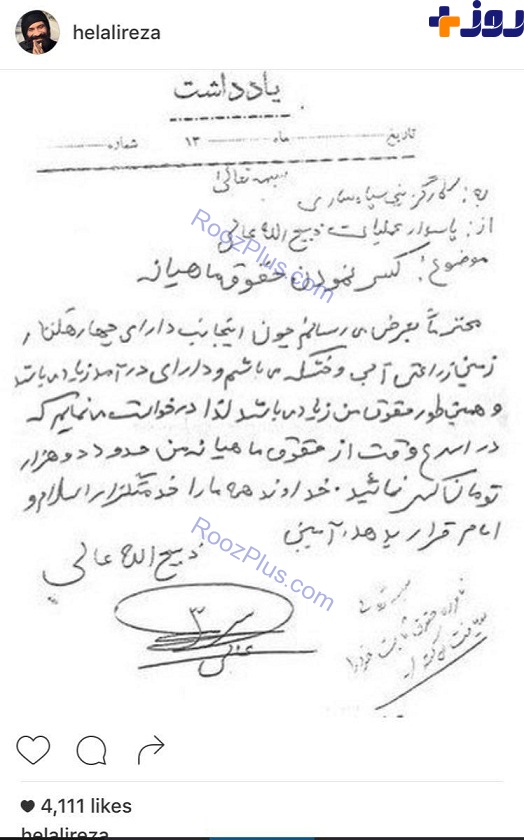 helalireza
روز+
یادداشت
تاریخ ماه ۱۳ شماره
بسمه تعالی
به: کارگزینی سپاه ساری
از: پاسدار عملیات ذبیح الله عالی
موضوع: کسر نمودن حقوق ماهیانه
محترماً بعرض می رسانم چون اینجانب دارای چهار هکتار
زمین زراعتی آبی و خشکه می باشم و دارای درآمد زیاد می باشد
و همین طور حقوق من زیاد می باشد لذا درخواست می نمایم که
در اسرع وقت از حقوق ماهیانه من حدود دو هزار
تومان کسر نمائید. خداوند همه ما را خدمتگزار اسلام و
امام قرار بدهد، آمین
ذبیح الله عالی
بسمه تعالی
RoozPlus.com
RoozPlus.com
4,111 likes
helalireza